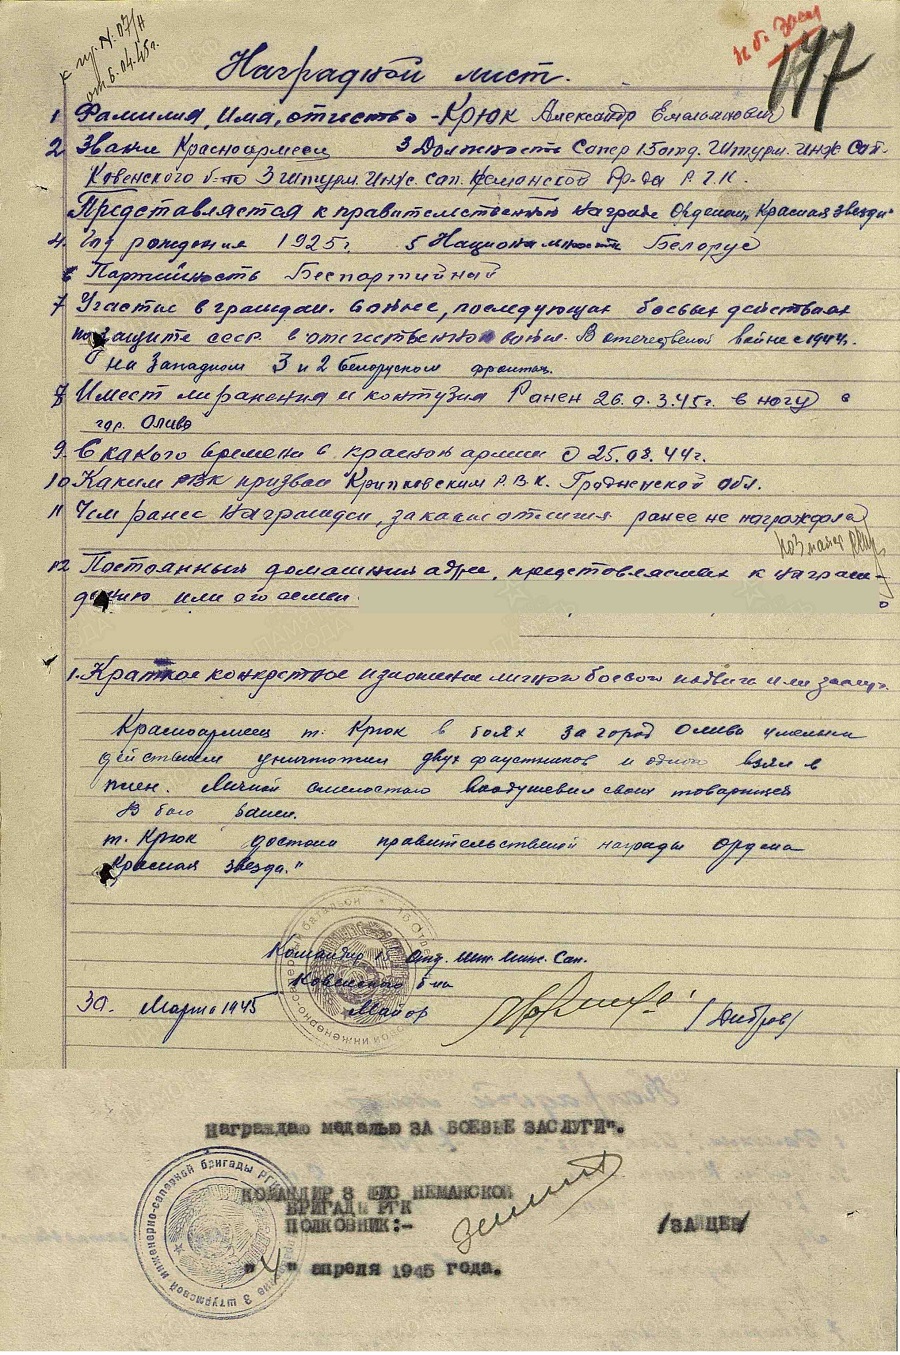 к пр. N: 07/н
от 6.04.45г.
н.б. Засл
197
Наградной лист.
1 Фамилия, имя, отчество - Крюк Александр Емельянович
2. Звание Красноармеец 3 Должность Сапер 15 отд. Штурм. Инж Сап.
Ковенского б-на 3 штурм. Инж. сап. Неманской Бр-да Р.Г.К.
Представляется к правительственной награде Орденом „Красная звезда"
4. Год рождения 1925г. 5 Национальность Белорус
6 Партийность Беспартийный
7 Участие в граждан. войне, последующих боевых действиях
по защите СССР в отечественной войне. В отечественой войне с 1944г.
на Западном 3 и 2 Белоруском фронтах.
8 Имеет ли ранения и контузия Ранен 26.0.3.45г. в ногу в
гор. Олива
9. С какого времени в красной армии с 25.08.44г.
10 Каким РВК призван Кринковским Р.В.К. Гродненской обл.
11 Чем ранее награжден, за какие отличия ранее не награждён
12 Постоянный домашний адрес, представляемых к награж-
дению или его семьи
1. Краткое конкретное изложение личного боевого подвига или заслуг.
Красноармеец т. Крюк в боях за город Олива умелым
действием уничтожил двух фаустников и одного взял в
плен. Личной смелостью воодушевил своих товарищей
В бою ранен.
т. Крюк достоин правительственой награды ордена
„Красная звезда."
Командир 15 Отд. Шт. Инж. Сап.
Ковенского б-на
30. Марта 1945 Майор /Дибров/
Награждаю медалью ЗА БОЕВЫЕ ЗАСЛУГИ".
КОМАНДИР 3 ШИС НЕМАНСКОЙ
БРИГАДЫ РГК
ПОЛКОВНИК:- /ЗАЙЦЕВ/
"4" апреля 1945 года.